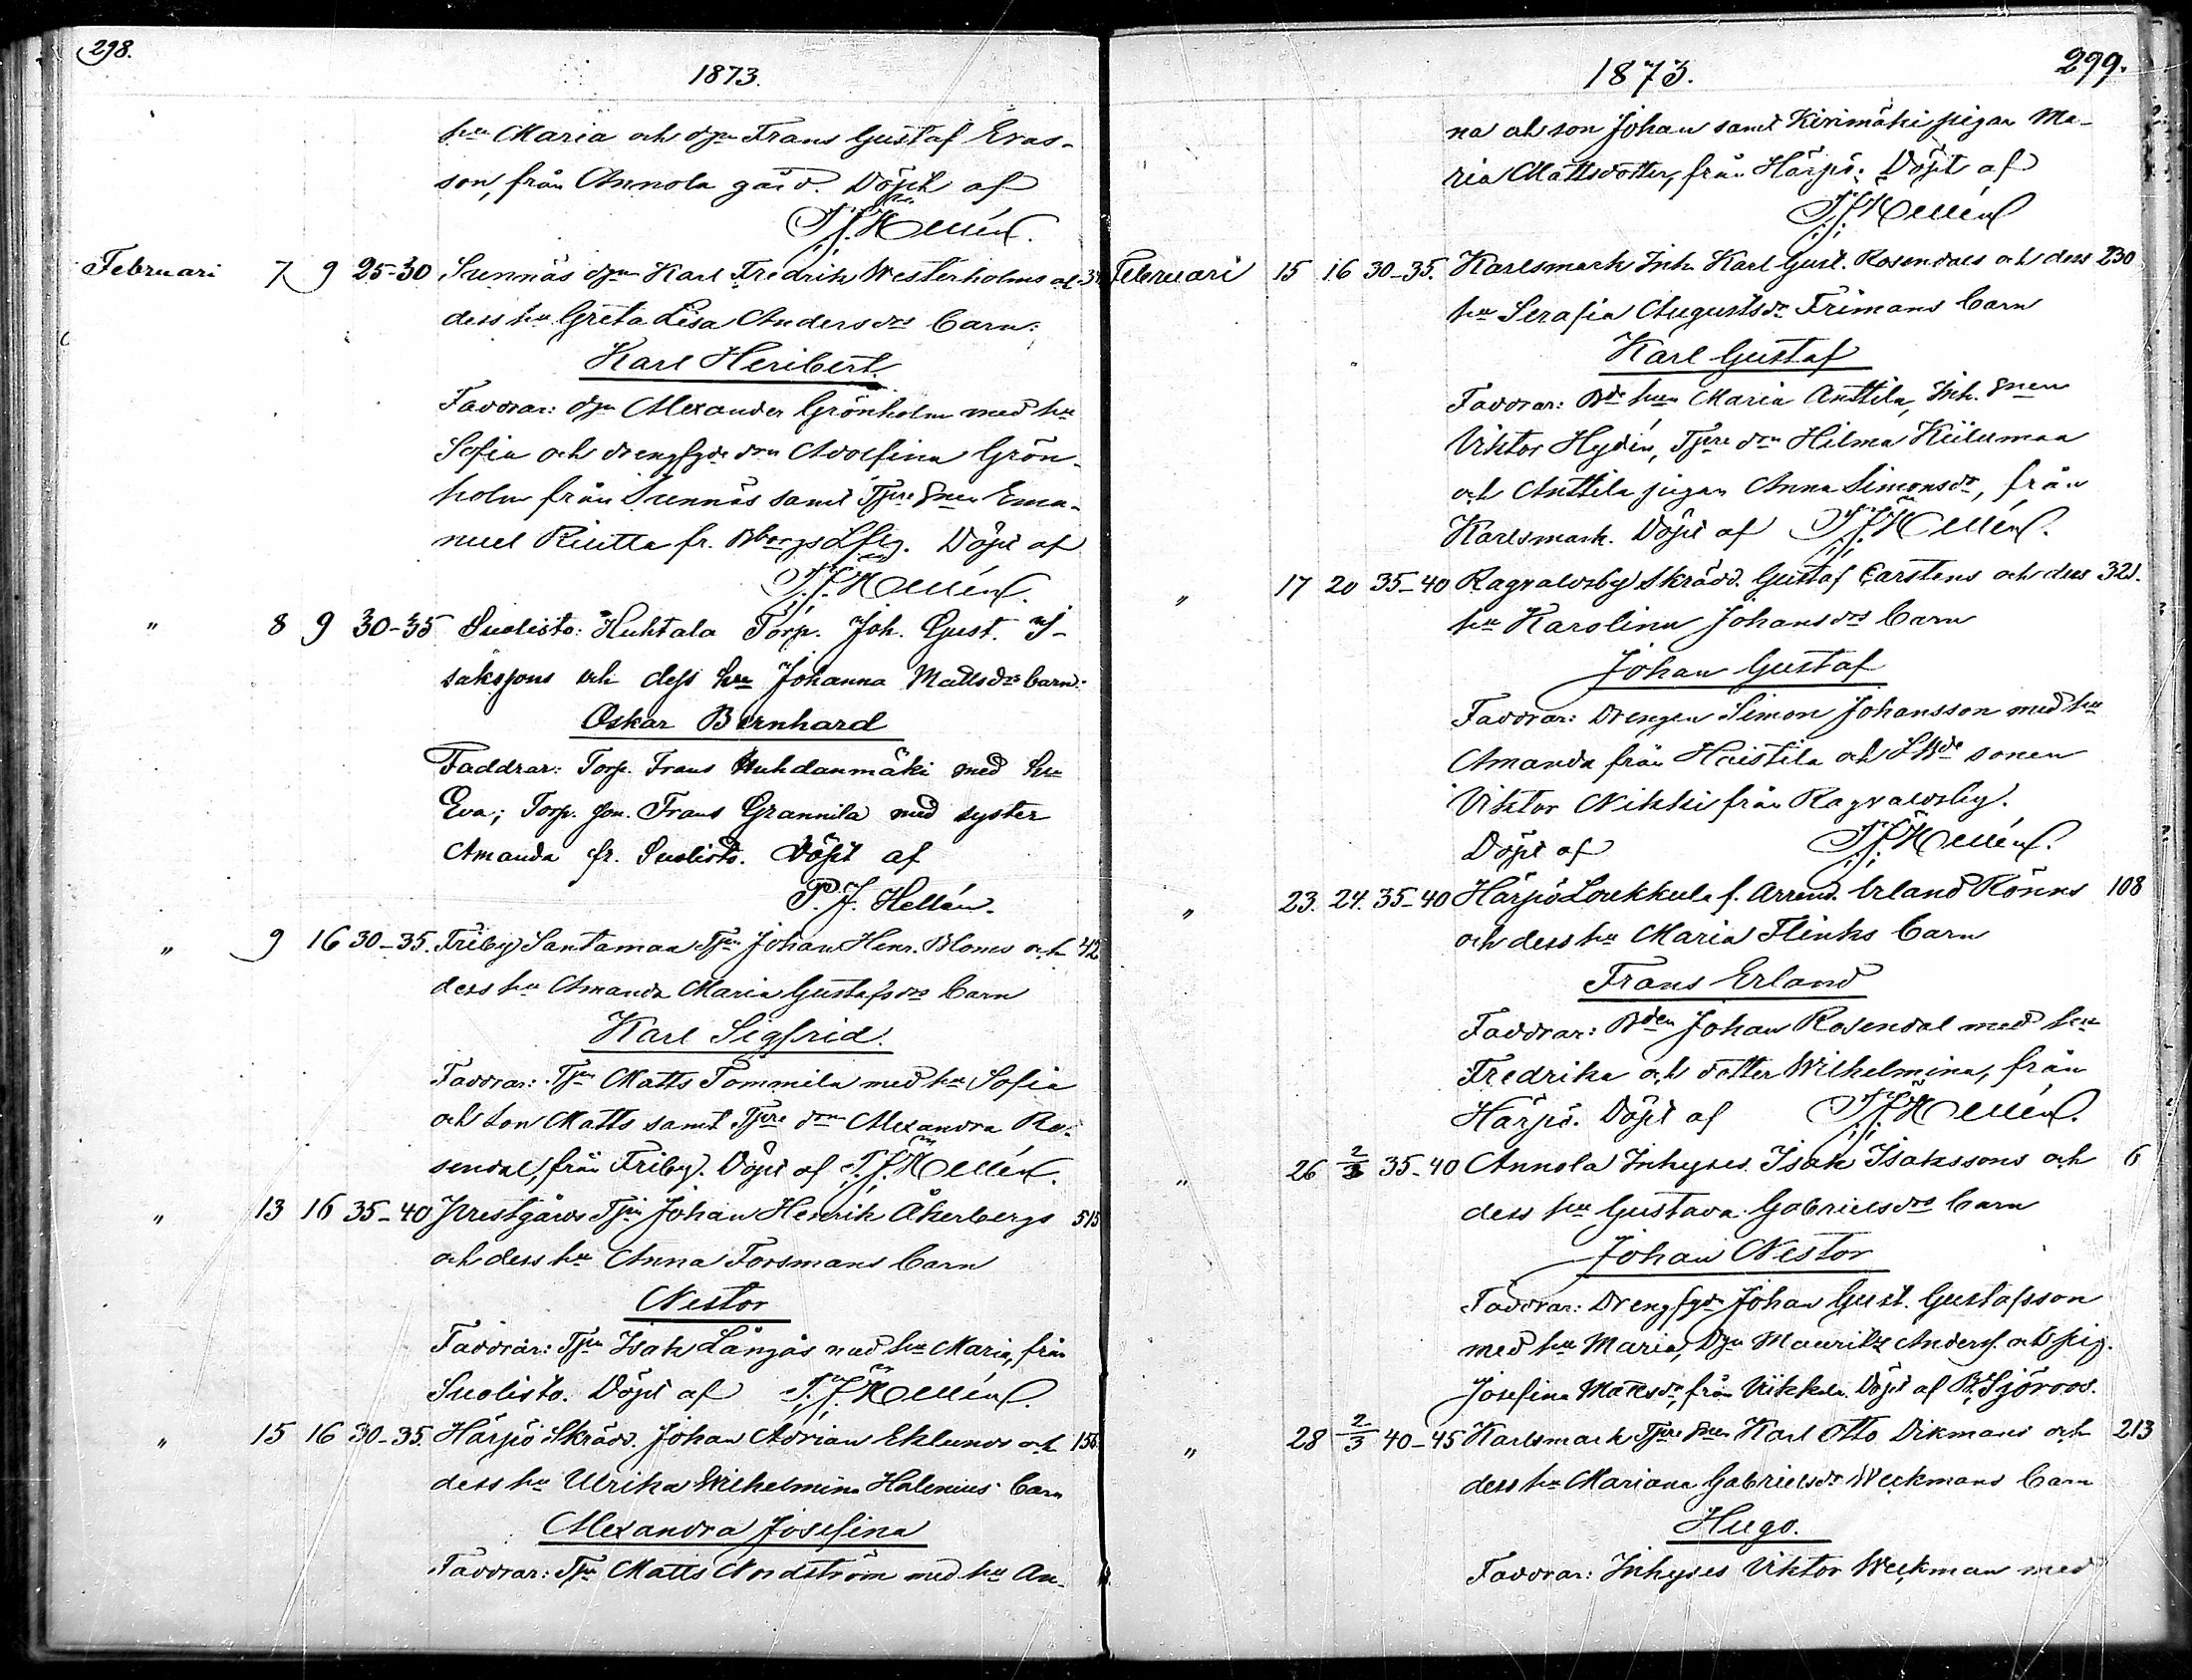 298.
1873.
hu Maria och dgn Frans Gustaf Evas-
son, från Annola gård. Döpt af
P. J. Hellén.
Februari 7 9 25-30 Sunnäs dgn Karl Fredrik Westerholms och
dess hu Greta Lisa Andersdrs barn:
Karl Heribert.
Faddrar: dgn Alexander Grönholm med hu
Sofia och drengfgde drn Adolfina Grön-
holm från Sunnäs samt Tjre snen Ema-
nuel Riutta fr. Bborgs Lflg. Döpt af
P. J. Hellén.
" 8 9 30-35 Suolisto: Huhtala Torp. Joh. Gust. I-
sakssons och dess hu Johanna Mattsdrs barn:
Oskar Bernhard
Faddrar: Torp. Frans Huhdanmäki med hu
Eva; Torp. son. Frans Grannila med syster
Amanda fr. Suolisto. Döpt af
P. J. Hellén.
" 9 16 30-35. Friby Santamaa Tjn Johan Henr. Bloms och 42
dess hu Amanda Maria Gustafsdrs barn
Karl Sigfrid.
Faddrar: Tjn Matts Tommila med hu Sofia
och son Matts samt Tjre drn Alexandra Ro-
sendal, från Friby. Döpt af P. J. Hellén.
" 13 16 35-40 Prestgårds Tjn Johan Henrik Åkerbergs 515
och dess hu Anna Forsmans barn
Nestor
Faddrar: Tjn Isak Långås med hu Maria, från
Suolisto. Döpt af P. J. Hellén.
" 15 16 30-35. Härpö Skrädd. Johan Adrian Eklunds och 156
dess hu Ulrika Wilhelmina Halenius' barn
Alexandra Josefina
Faddrar: Tjn Matts Nordström med hu An-
299.
1873.
na och son Johan samt Kirimäki pigan Ma-
ria Mattsdotter, från Härpö. Döpt af
P. J. Hellén
Februari 15 16 30-35. Karlsmark Inh. Karl Gust. Rosendals och dess 230
hu Serafia Augustsdr Frimans barn
Karl Gustaf
Faddrar: Bde hun Maria Anttila, Inh. snen
Viktor Hydén, Tjre drn Hilma Kiilumaa
och Anttila pigan Anna Simonsdr, från
Karlsmark. Döpt af P. J. Hellén.
" 17 20 35-40 Ragvaldsby Skrädd. Gustaf Carstens och dess 321.
hu Karolina Johansdrs barn
Johan Gustaf
Faddrar: Drengen Simon Johansson med hu
Amanda från Haistila och LBde sonen
Viktor Nikki från Ragvaldsby.
Döpt af P. J. Hellén.
" 23. 24. 35-40 Härpö Loukkula f. Arrend. Erland Rönns 108
och dess hu Maria Flinks barn
Frans Erland
Faddrar: Bden Johan Rosendal med hu
Fredrika och dotter Wilhelmina, från
Härpö. Döpt af P. J. Hellén.
" 26 2/3 35-40 Annola Inhyses. Isak Isakssons och 6
dess hu Gustava Gabrielsdrs barn
Johan Nestor
Faddrar: Drengfgdn Johan Gust. Gustafsson
med hu Maria, Dgn Mauritz Anders. och pig.
Josefina Mattsdr, från Viikkala. Döpt af Sjöroos.
" 28 2/3 40-45 Karlsmark Tjre snen Karl Otto Dikmans och 213
dess hu Mariana Gabrielsdr Weckmans barn
Hugo.
Faddrar: Inhyses Viktor Weckman med